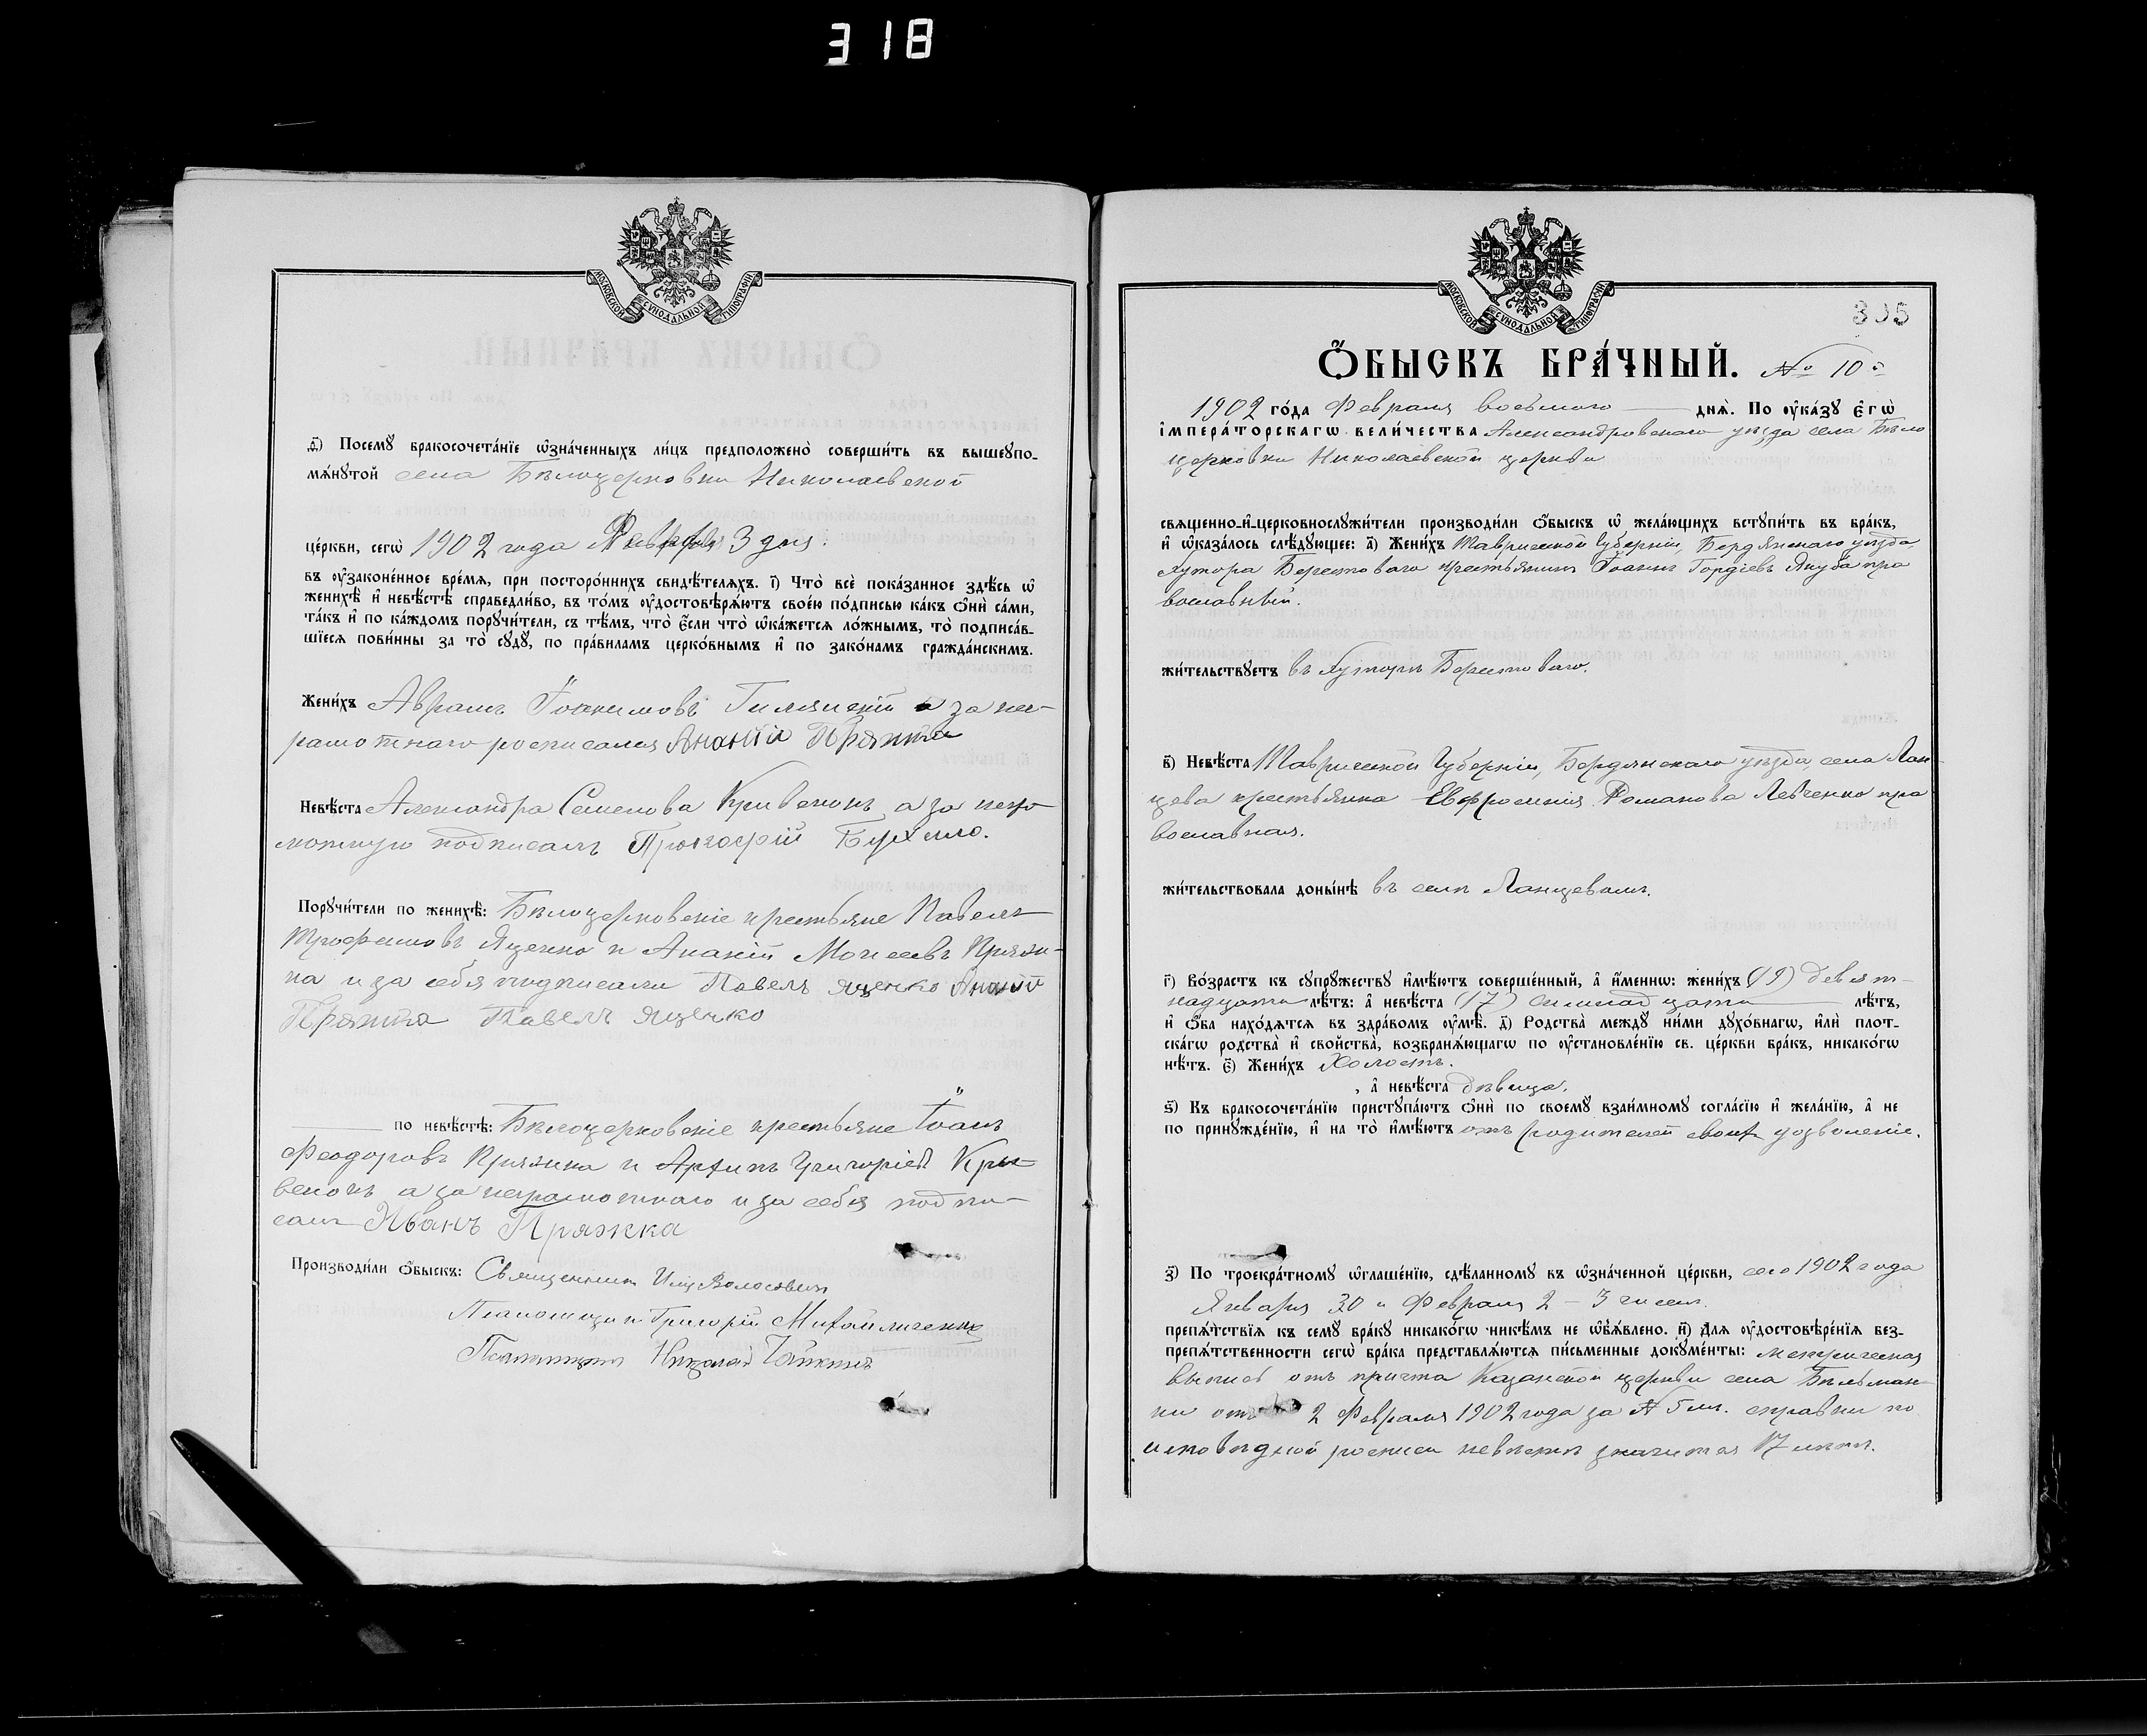 318
МОСКОВСКОЙ СѴНОДАЛЬНОЙ ТИПОГРАФІИ
д҃) Посемꙋ бракосочета́нїе ѡ҆зна́ченныхъ ли́цъ предположено̀ соверши́ть въ вышеꙋпо-
мѧ́нꙋтой села Бѣлоцерковки Николаевской
це́ркви, сегѡ̀ 1902 года Февраля 3 дня.
въ ᲂу҆зако́ненное вре́мѧ, при посторо́ннихъ свидѣ́телѧхъ. і҃) Что̀ всѐ пока́занное здѣ́сь ѡ҆
женихѣ̀ и҆ невѣ́стѣ справедли́во, въ то́мъ ᲂу҆достовѣрѧ́ютъ свое́ю по́дписью ка́къ ѻ҆нѝ са́ми,
та́къ и҆ по ка́ждомъ порꙋчи́тели, съ тѣ́мъ, что̀ є҆́сли что̀ ѡ҆ка́жетсѧ ло́жнымъ, то̀ подписа́в-
шїесѧ пови́нны за то̀ сꙋдꙋ̀, по пра́виламъ церко́внымъ и҆ по зако́намъ гражда́нскимъ.
Жени́хъ Аврамъ Іоакимовъ а за не-
грамотнаго росписался Ананій Пряжка
Невѣ́ста Александра Семенова Кривенокъ а за негра
мотную подписалъ
Порꙋчи́тели по женихѣ̀: Бѣлоцерковскіе крестьяне Павелъ
Трофимовъ Яценко и Ананій Моисеевъ Пряж-
ка и за себя подписали Павелъ Яценко Ананій
Пряжка Павелъ Яценко
по невѣ́стѣ: Бѣлоцерковскіе крестьяне Іоанъ
Феодоровъ Пряжка и Архипъ Григоріевъ Кри-
венокъ а за неграмотнаго и за себя подпи-
салъ Иванъ Пряжка
Производи́ли ѻ҆́быскъ: Священникъ
Псаломщикъ Григорій Михайличенко
Псаломщикъ Николай
МОСКОВСКОЙ СѴНОДАЛЬНОЙ ТИПОГРАФІИ
305
Ѻ҆́БЫСКЪ БРА́ЧНЫЙ. № 10й
1902 го́да Февраля восьмого днѧ̀. По ᲂу҆ка́зꙋ є҆гѡ̀
і҆мпера́торскагѡ вели́чества Александровскаго уѣзда села Бѣло
церковки Николаевской церкви
свѧщенно-и҆-церковнослꙋжи́тели производи́ли ѻ҆́быскъ ѡ҆ жела́ющихъ встꙋпи́ть въ бра́къ,
и҆ ѡ҆каза́лось слѣ́дꙋющее: а҃) Жени́хъ Таврической Губерніи, Бердянскаго уѣзда,
хутора Берестоваго крестьянинъ Іоаннъ Гордіевъ Якуба пра
вославный.
жи́тельствꙋетъ въ хуторѣ Берестоваго.
в҃) Невѣ́ста Таврической Губерніи, Бердянскаго уѣзда, села Лан
цева крестьянка Евфросинія Романова Левченко пра
вославная.
жи́тельствовала доны́нѣ въ селѣ Ланцевомъ.
г҃) Во́зрастъ къ сꙋпрꙋ́жествꙋ и҆мѣ́ютъ соверше́нный, а҆ и҆́меннѡ: жени́хъ (19) девят-
надцати лѣ́тъ: а҆ невѣ́ста (17) симнадцати лѣ́тъ,
и҆ ѻ҆́ба нахо́дѧтсѧ въ здра́вомъ ᲂу҆мѣ̀. д҃) Родства̀ междꙋ̀ ни́ми дꙋхо́внагѡ, и҆лѝ плот-
ска́гѡ родства̀ и҆ сво́йства̀, возбранѧ́ющагѡ по ᲂу҆становле́нїю св. це́ркви бра́къ, никако́гѡ
нѣ́тъ. є҃) Жени́хъ Холостъ.
, а҆ невѣ́ста дѣвица.
ѕ҃) Къ бракосочета́нїю пристꙋпа́ютъ ѻ҆нѝ по своемꙋ̀ взаи́мномꙋ согла́сїю и҆ жела́нїю, а҆ не
по принꙋжде́нїю, и҆ на то̀ и҆мѣ́ютъ отъ родителей своихъ дозволеніе.
з҃) По троекра́тномꙋ ѡ҆глаше́нїю, сдѣ́ланномꙋ въ ѡ҆зна́ченной це́ркви, сего 1902 года
Января 30 и Февраля 2 – 3 чисел.
препѧ́тствїѧ къ семꙋ̀ бра́кꙋ никако́гѡ никѣ́мъ не ѡ҆б̾ѧ́влено. и҃) Длѧ ᲂу҆достовѣре́нїѧ без-
препѧ́тственности сегѡ̀ бра́ка представлѧ́ютсѧ пи́сьменные докꙋме́нты: метрическая
выпись отъ причта Казанской церкви села Бѣльман
ки отъ 2 Февраля 1902 года за № 5м. справки по
исповѣдной росписи невѣстѣ значится 17 лѣтъ.